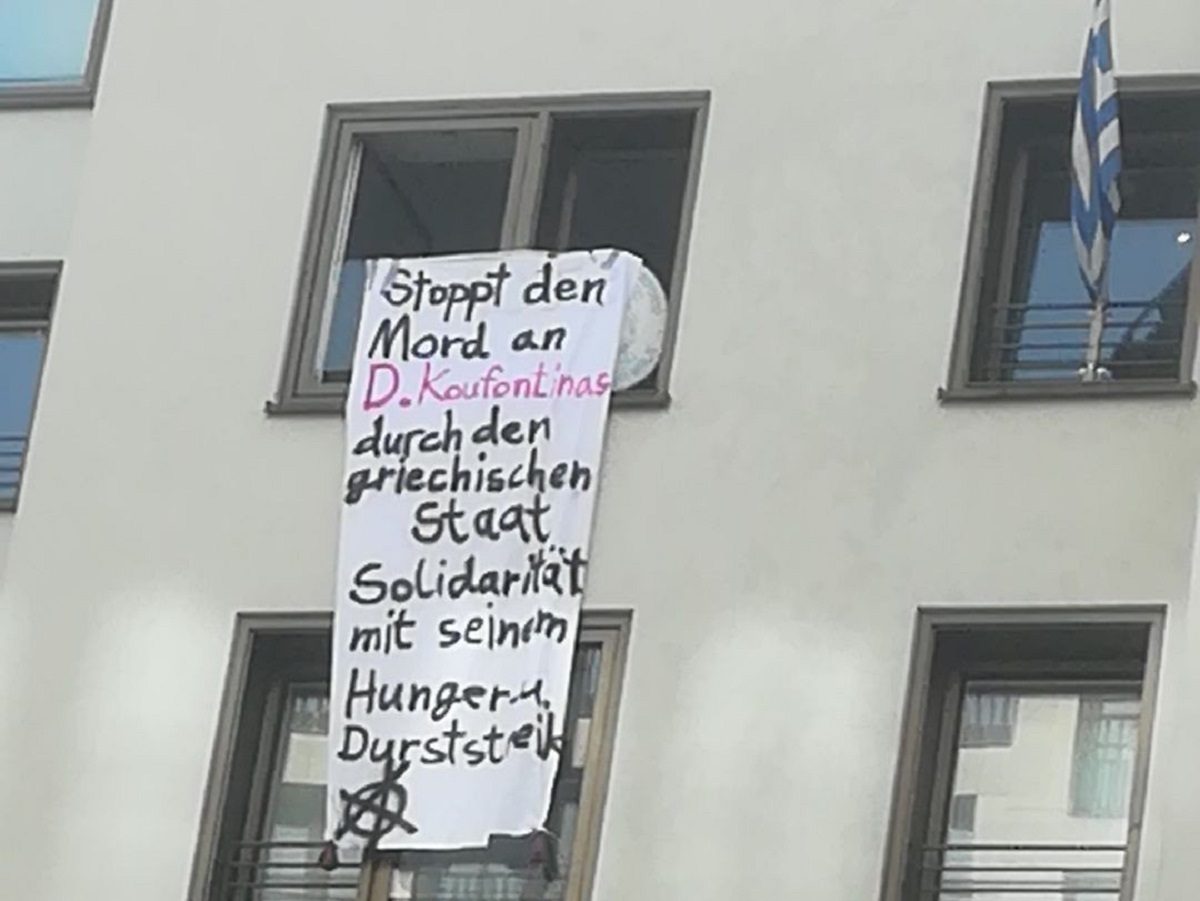 Stoppt den
Mord an
D. Koufontinas
durch den
griechischen
Staat
Solidarität
mit seinem
Hunger u.
Durststreik